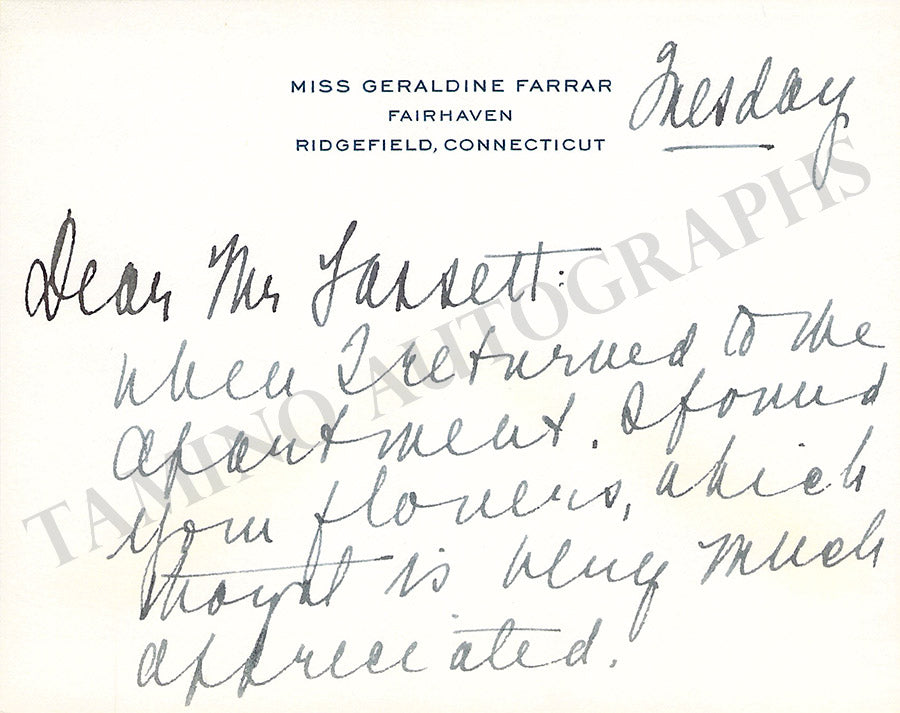 MISS GERALDINE FARRAR
FAIRHAVEN
RIDGEFIELD, CONNECTICUT
Tuesday
Dear Mr Fassett:
When I returned to the
apartment. I found
your flowers, which
thoyht is being much
appreciated.
TAMINO AUTOGRAPHS